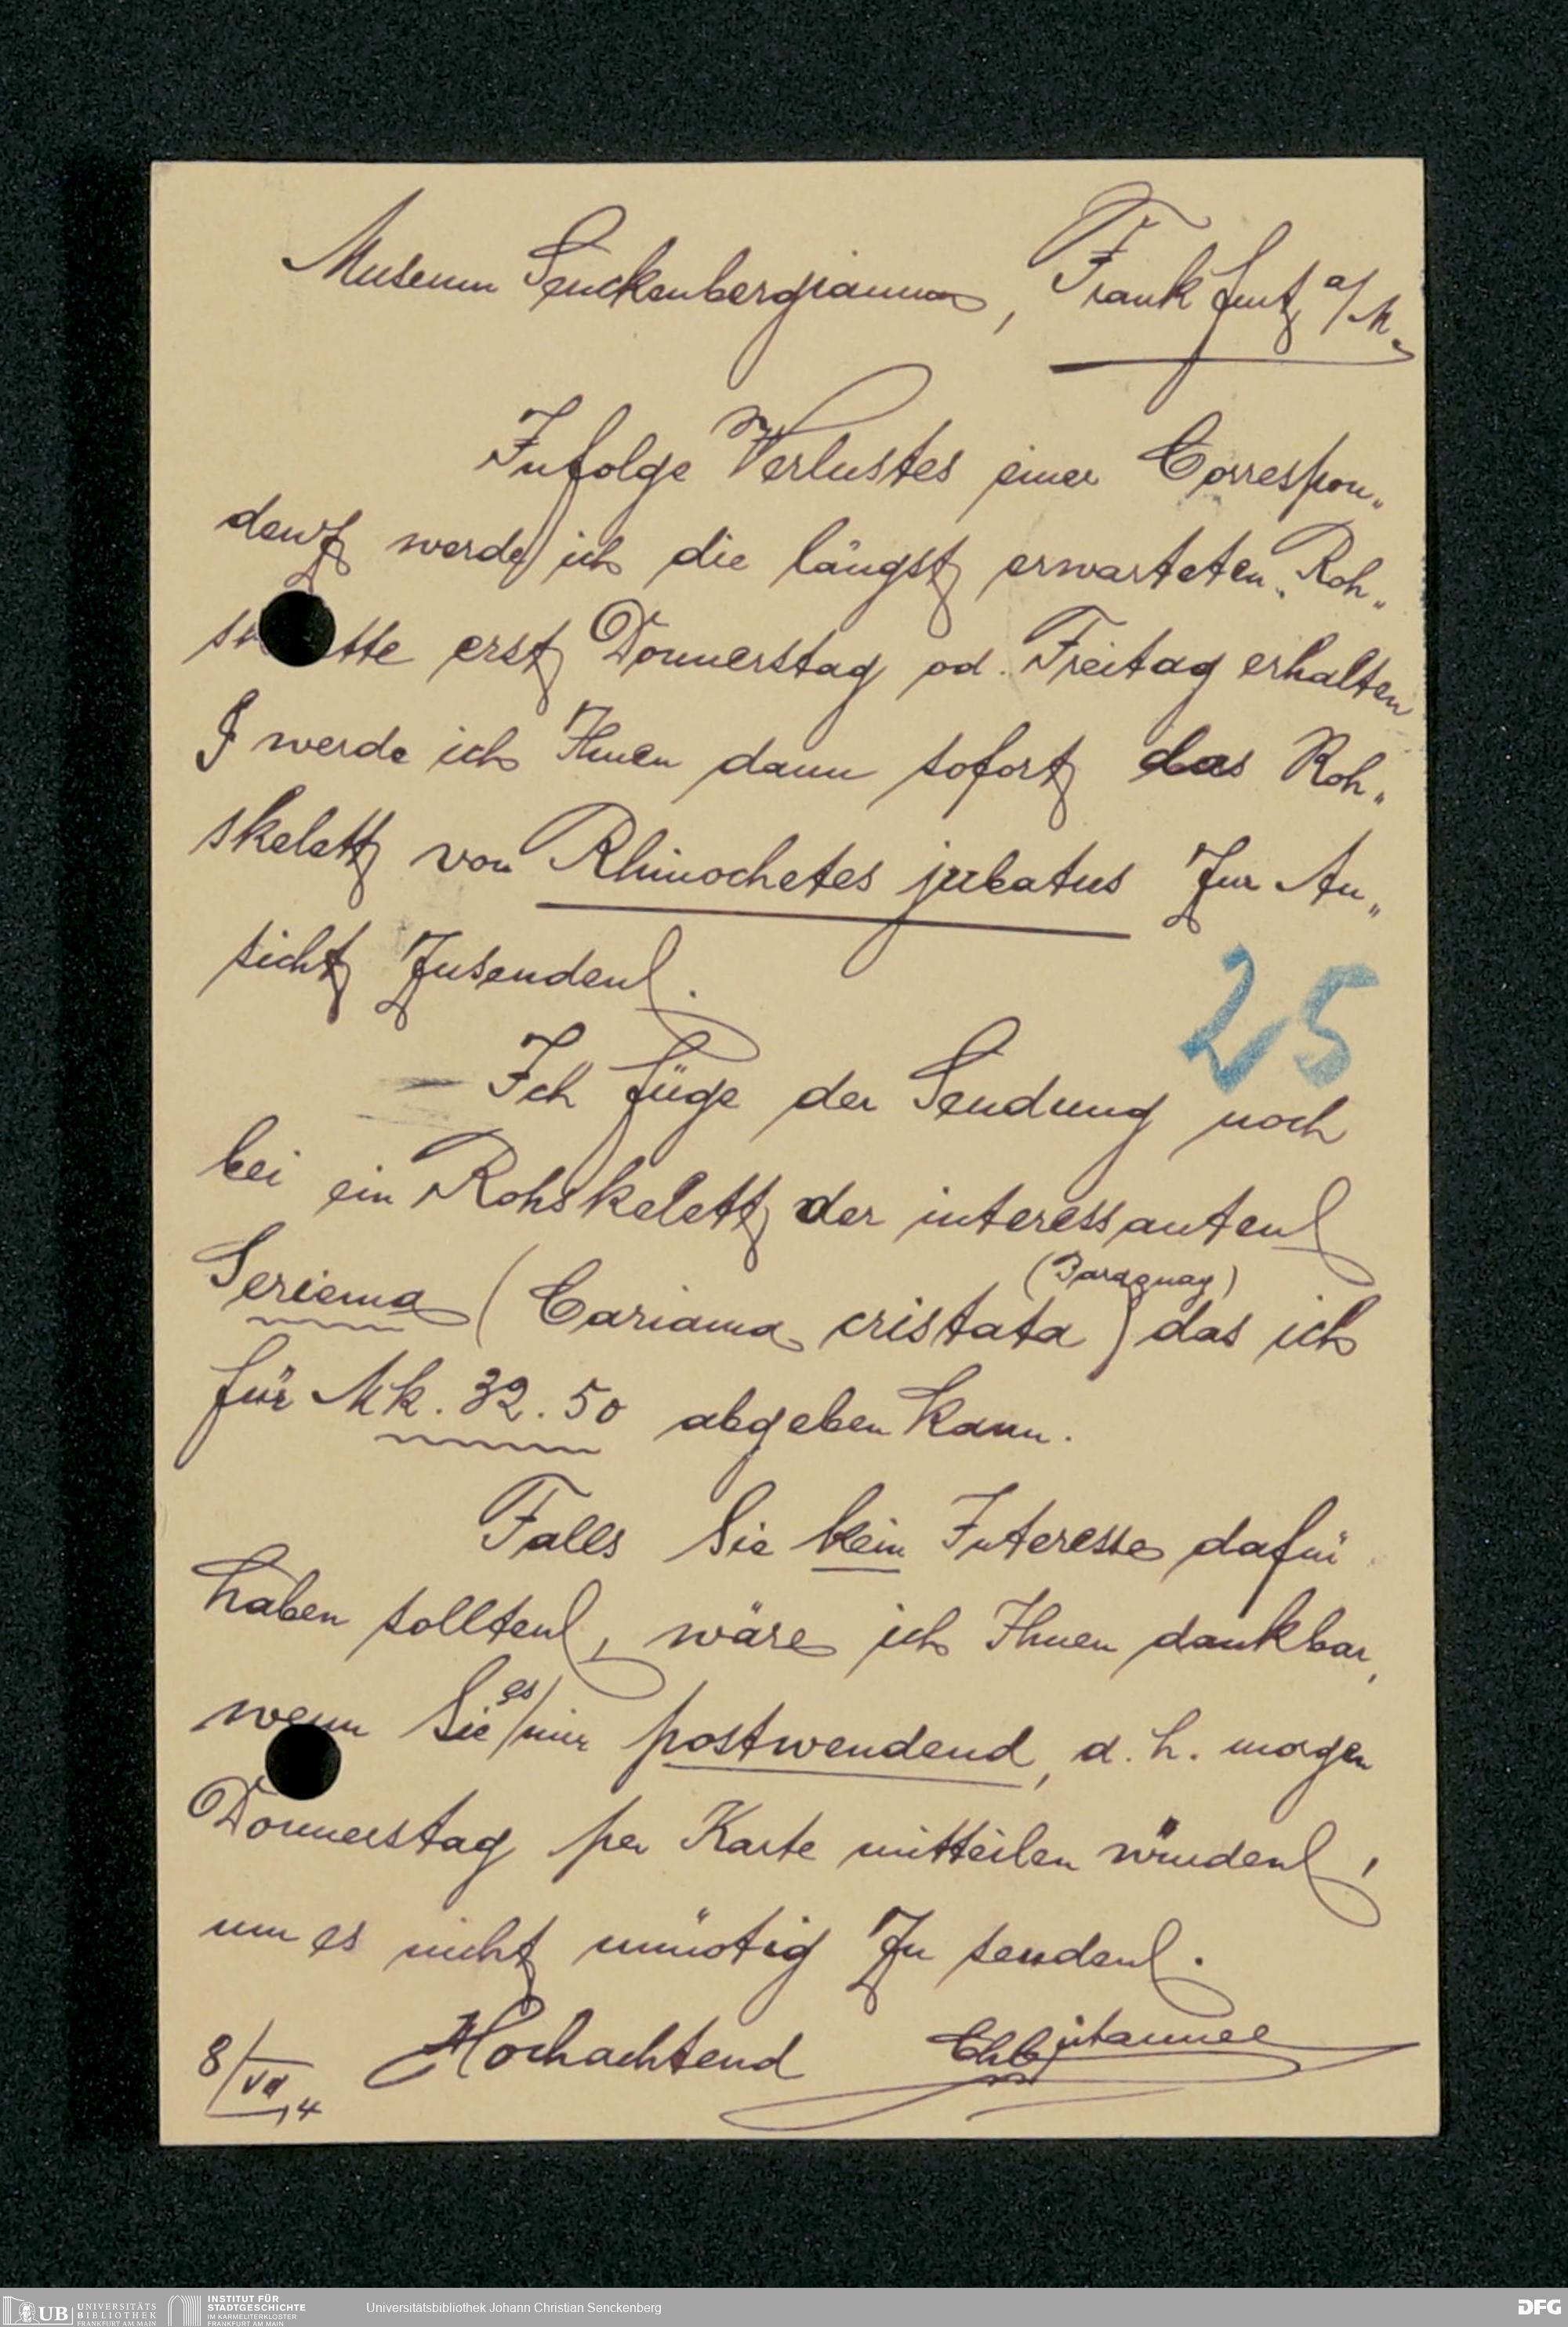 Museum Senckenbergianum, Frankfurt a/M.
Infolge Verlustes einer Correspon„
denz werde ich die längst erwarteten Roh„
sk tte erst Donnerstag od. Freitag erhalten
& werde ich Ihnen dann sofort das Roh„
skelett von Rhinochetes jubatus zur An„
sicht zusenden.
25
Ich füge der Sendung noch
bei ein Rohskelett der interessanten
Seriema (Cariama cristata) das ich
(Paraguay)
für Mk. 32.50 abgeben kann.
Falls Sie kein Interesse dafür
haben sollten, wäre ich Ihnen dankbar,
wenn Sie es mir postwendend, d. h. morgen
Donnerstag per Karte mitteilen würden,
um es nicht unnötig zu senden.
Hochachtend
8/VII 14
UB UNIVERSITÄTS BIBLIOTHEK FRANKFURT AM MAIN
INSTITUT FÜR STADTGESCHICHTE IM KARMELITERKLOSTER FRANKFURT AM MAIN
Universitätsbibliothek Johann Christian Senckenberg
DFG